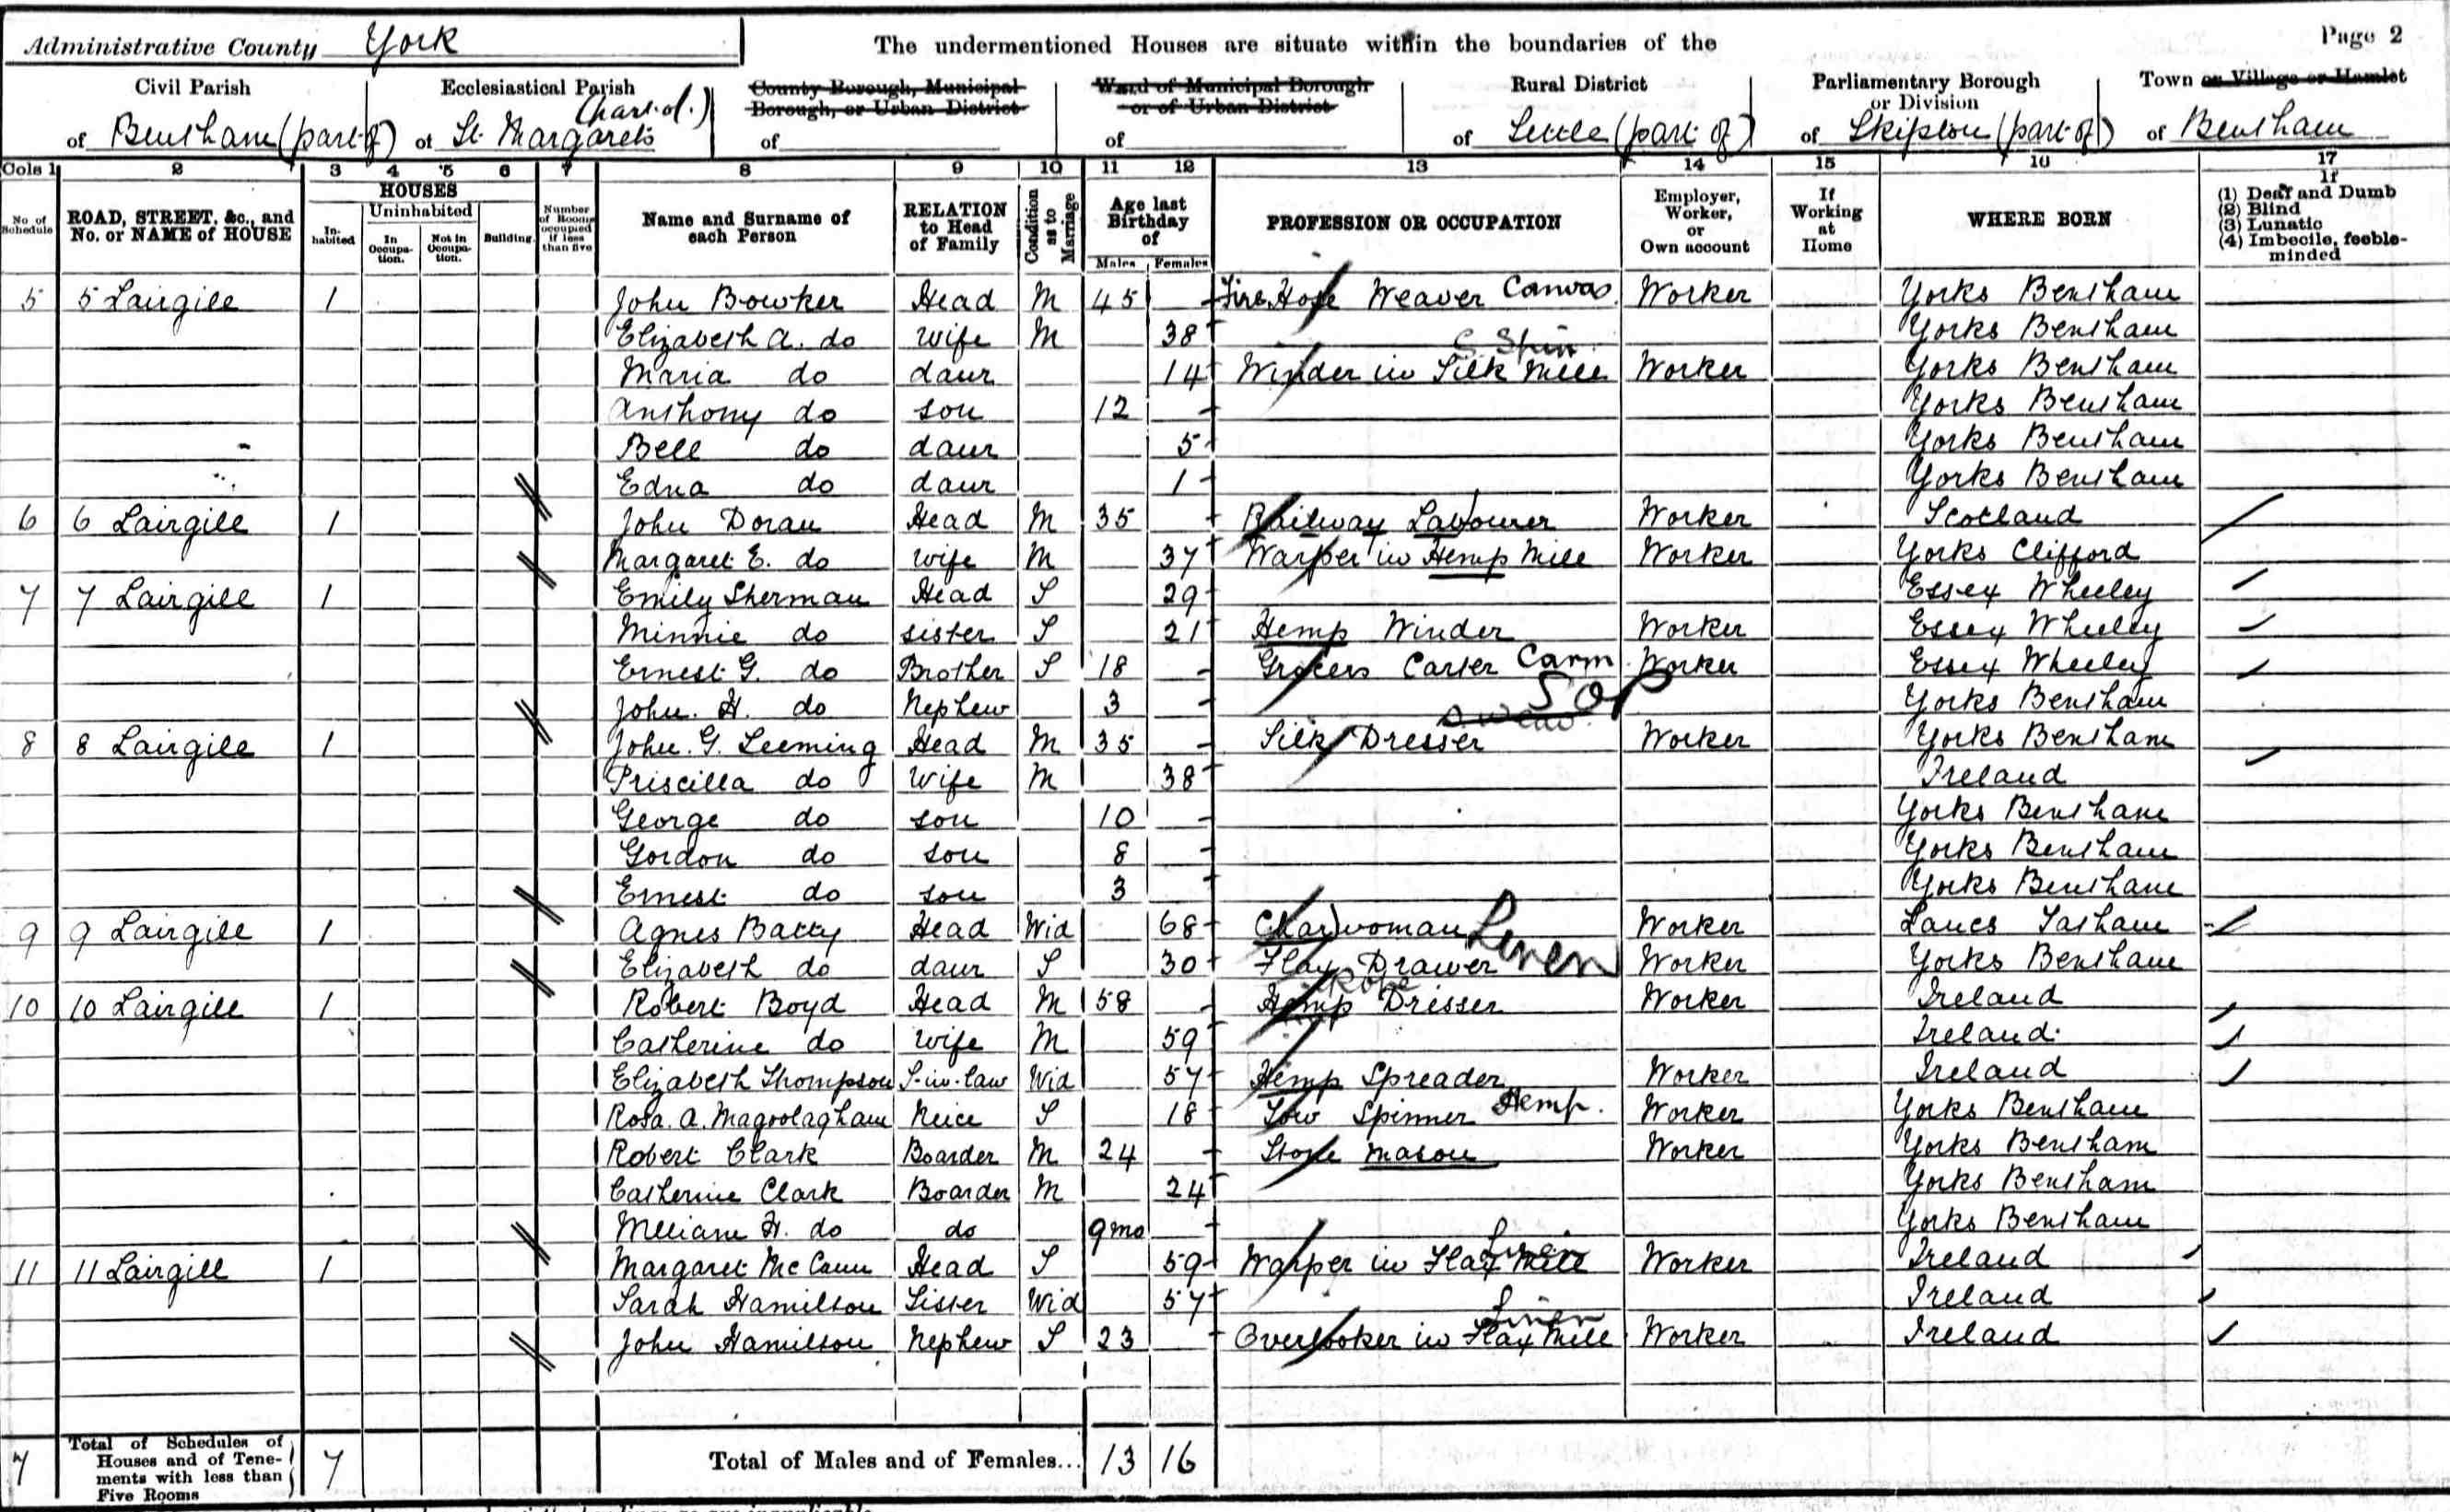 Administrative County York The undermentioned Houses are situate within the boundaries of the Page 2
Civil Parish of Bentham (part of)
Ecclesiastical Parish of St. Margarets
County Borough, Municipal Borough, or Urban District of
Ward of Municipal Borough or of Urban District of
Rural District of Settle (part of)
Parliamentary Borough or Division of Skipton (part of)
Town or Village or Hamlet of Bentham
Cols 1 2 3 4 5 6 7 8 9 10 11 12 13 14 15 16 17
No. of Schedule
ROAD, STREET, &c., and No. or NAME of HOUSE
HOUSES
Inhabited
Uninhabited
In Occupation.
Not in Occupation.
Building.
Number of Rooms occupied if less than five
Name and Surname of each Person
RELATION to Head of Family
Condition as to Marriage
Age last Birthday of
Males Females
PROFESSION OR OCCUPATION
Employer, Worker, or Own account
If Working at Home
WHERE BORN
If
(1) Deaf and Dumb
(2) Blind
(3) Lunatic
(4) Imbecile, feeble-minded
5 5 Lairgill 1 John Bowker Head M 45 Fire Hose Weaver Canvas Worker Yorks Bentham
Elizabeth A. do wife M 38 Yorks Bentham
S. Spin
Maria do daur 14 Winder in Silk Mill Worker Yorks Bentham
Anthony do son 12 Yorks Bentham
Bell do daur 5 Yorks Bentham
Edna do daur 1 Yorks Bentham
6 6 Lairgill 1 John Doran Head M 35 Railway Labourer Worker Scotland
Margaret E. do wife M 37 Warper in Hemp Mill Worker Yorks Clifford
7 7 Lairgill 1 Emily Sherman Head S 29 Essex Wheeley
Minnie do sister S 21 Hemp Winder Worker Essex Wheeley
Ernest G. do Brother S 18 Grocers Carter Carm Worker Essex Wheeley
John. H. do Nephew 3 Yorks Bentham
8 8 Lairgill 1 John. G. Leeming Head M 35 Silk Dresser Worker Yorks Bentham
Priscilla do wife M 38 Ireland
George do son 10 Yorks Bentham
Gordon do son 8 Yorks Bentham
Ernest do son 3 Yorks Bentham
9 9 Lairgill 1 Agnes Batty Head Wid 68 Charwoman Worker Lancs Tatham
Elizabeth do daur S 30 Flax Drawer Linen Worker Yorks Bentham
Rope
10 10 Lairgill 1 Robert Boyd Head M 58 Hemp Dresser Worker Ireland
Catherine do wife M 59 Ireland
Elizabeth Thompson S-in-law Wid 57 Hemp Spreader Worker Ireland
Rosa. A. Magoolagham Neice S 18 Tow Spinner Hemp. Worker Yorks Bentham
Robert Clark Boarder M 24 Stone Mason Worker Yorks Bentham
Catherine Clark Boarder M 24 Yorks Bentham
William H. do do 9mo Yorks Bentham
Linen
11 11 Lairgill 1 Margaret McCann Head S 59 Warper in Flax Mill Worker Ireland
Sarah Hamilton Sister Wid 57 Ireland
Linen
John Hamilton Nephew S 23 Overlooker in Flax Mill Worker Ireland
7 Total of Schedules of Houses and of Tenements with less than Five Rooms 7 Total of Males and of Females... 13 16